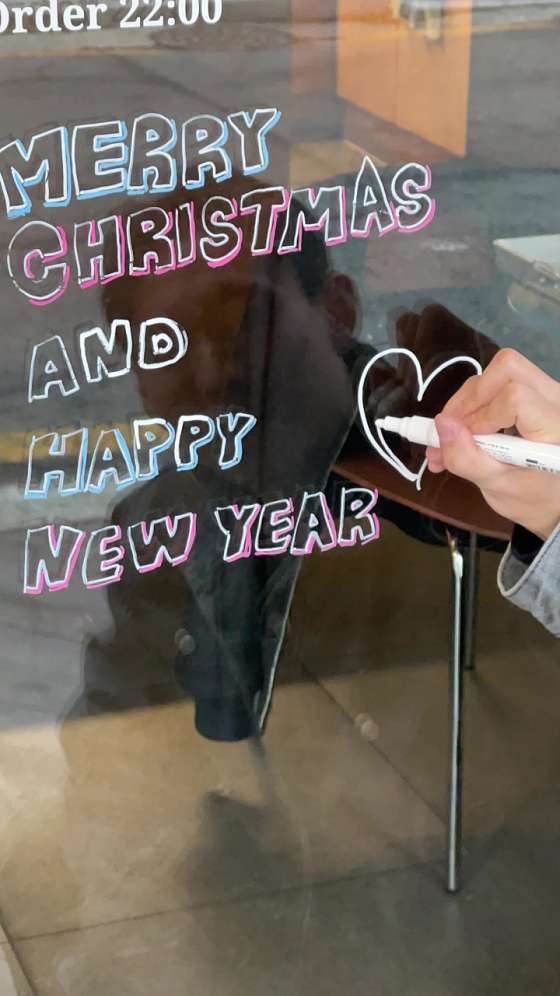 Order 22:00
MERRY
CHRISTMAS
AND
HAPPY
NEW YEAR